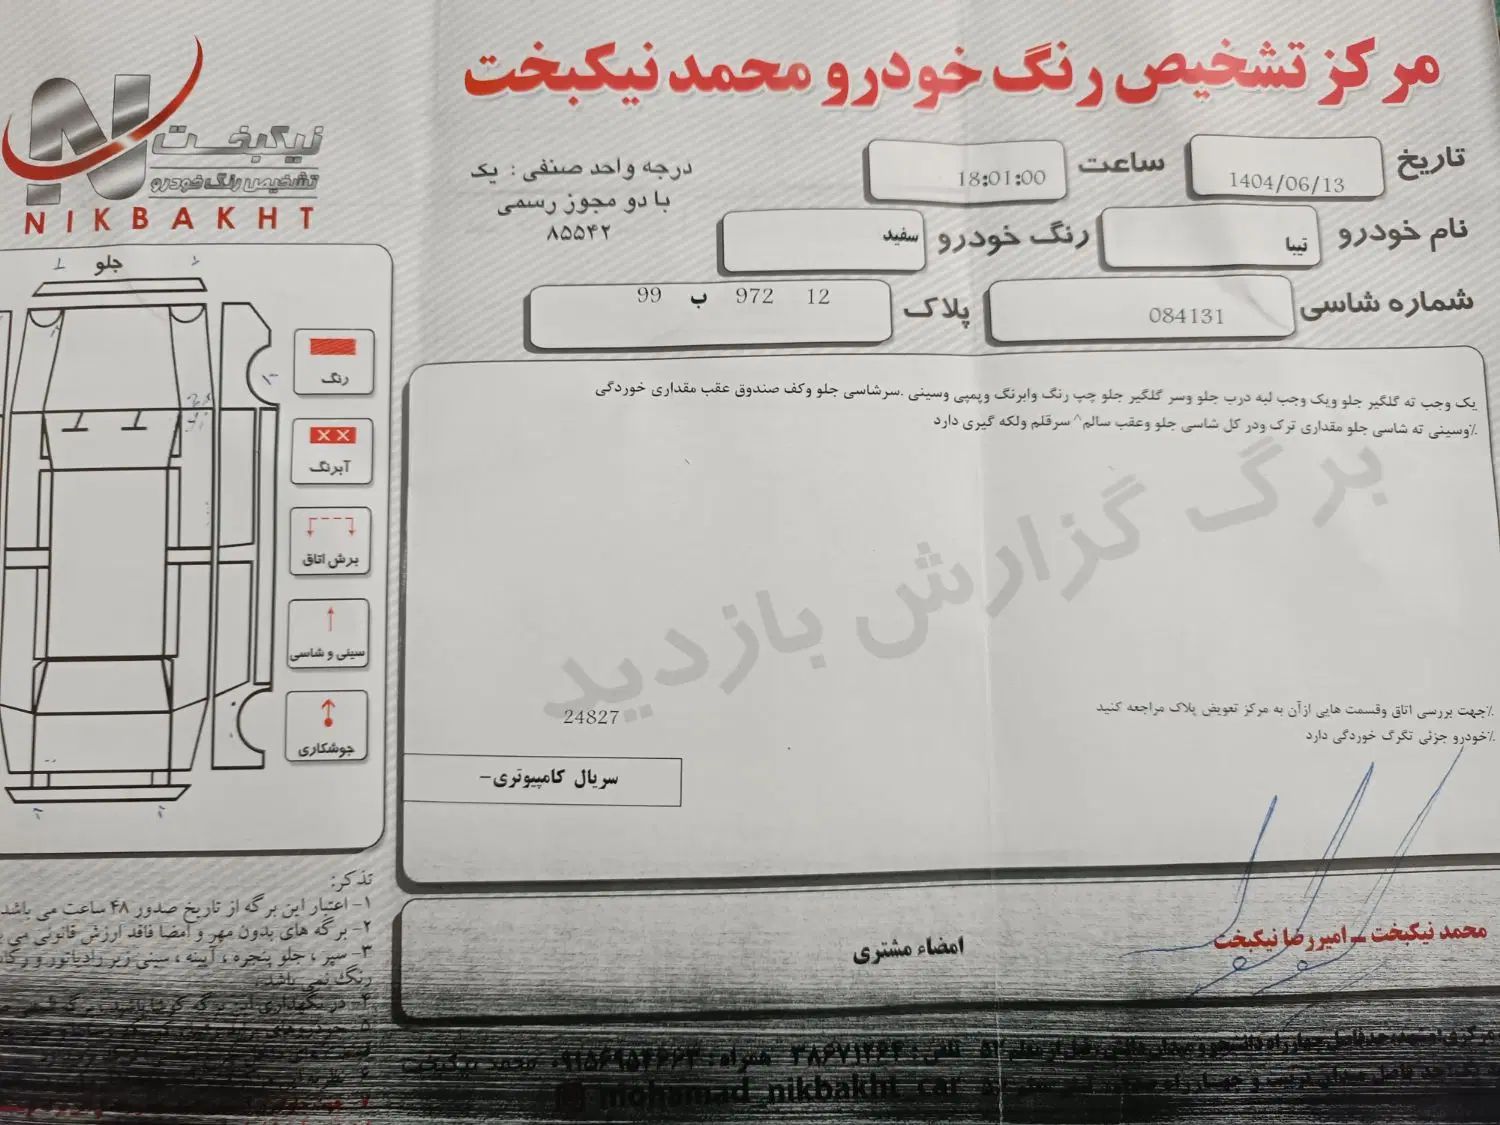 مرکز تشخیص رنگ خودرو محمد نیکبخت
نیکبخت
تشخیص رنگ خودرو
NIKBAKHT
درجه واحد صنفی : یک
با دو مجوز رسمی
۸۵۵۴۲
تاریخ 1404/06/13 ساعت 18:01:00
نام خودرو تیبا رنگ خودرو سفید
شماره شاسی 084131 پلاک 12 972 ب 99
جلو
رنگ
آبرنگ
برش اتاق
سینی و شاسی
جوشکاری
یک وجب ته گلگیر جلو ویک وجب لبه درب جلو وسر گلگیر جلو چپ رنگ وابرنگ وپمپی وسینی .سرشاسی جلو وکف صندوق عقب مقداری خوردگی
٪وسینی ته شاسی جلو مقداری ترک ودر کل شاسی جلو وعقب سالم^ سرقلم ولکه گیری دارد
برگ گزارش بازدید
٪جهت بررسی اتاق وقسمت هایی ازآن به مرکز تعویض پلاک مراجعه کنید
٪خودرو جزئی تگرگ خوردگی دارد
24827
سریال کامپیوتری-
محمد نیکبخت - امیررضا نیکبخت
امضاء مشتری
تذکر:
۱- اعتبار این برگه از تاریخ صدور ۴۸ ساعت می باشد
۲- برگه های بدون مهر و امضا فاقد ارزش قانونی می
۳- سپر ، جلو پنجره ، آیینه ، سینی زیر رادیاتور و
رنگ نمی باشد.
تلفن: ۳۸۶۷۱۲۶۴ همراه: ۰۹۱۵۶۹۵۴۶۶۳ محمد نیکبخت
mohamad_nikbakht_car